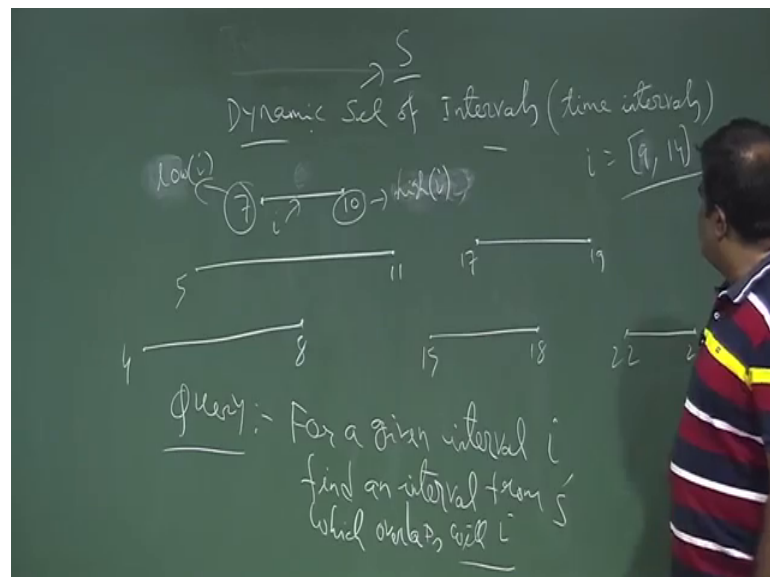 S
Dynamic Set of Intervals (time intervals)
low(i)
i = [9, 14]
7 i 10 → high(i)
5 11 17 19
4 8 15 18 22 2
Query:- For a given interval i
find an interval from S
which overlaps with i